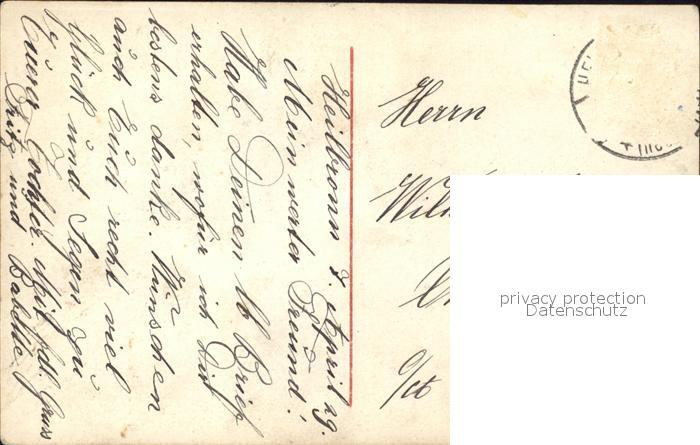 Heilbronn d. April 29.
Mein werter Freund!
Habe Deinen lb Brief
erhalten, wofür ich Dir
bestens danke. Wünschen
auch Euch recht viel
Glück und Segen zu
Eurer Tochter. Mit fdl. Gruss
Fritz und Babette.
Herrn
privacy protection
Datenschutz